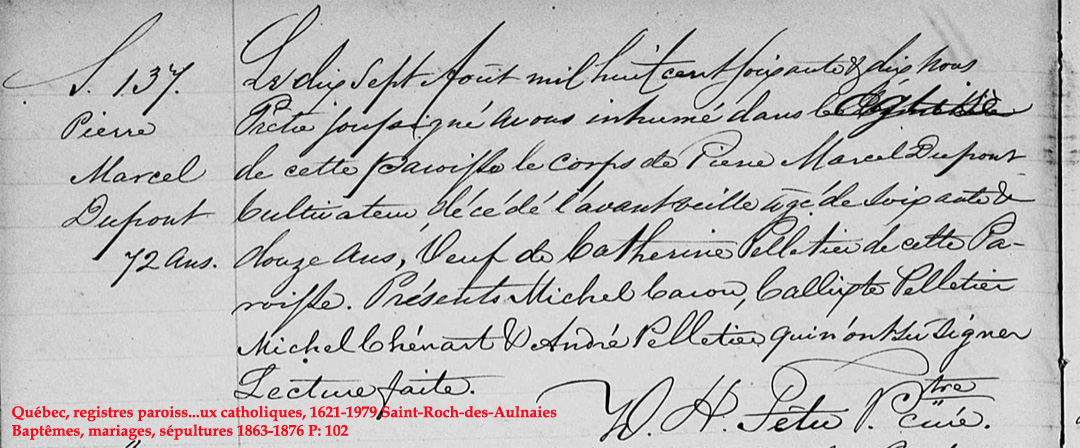 S. 137.
Pierre
Marcel
Dupont
72 ans.
Le dix Sept Août mil huit cent soixante & dix nous
Prêtre soussigné avons inhumé dans le
de cette Paroisse le corps de Pierre Marcel Dupont
Cultivateur décédé l'avant veille âgé de soixante &
douze ans, Veuf de Catherine Pelletier de cette Pa-
roisse. Présents Michel Caron, Callixte Pelletier
Michel Chénart & André Pelletier qui n'ont su signer
Lecture faite.
W. H. Têtu Ptre
Curé.
Québec, registres paroiss...ux catholiques, 1621-1979 Saint-Roch-des-Aulnaies
Baptêmes, mariages, sépultures 1863-1876 P: 102